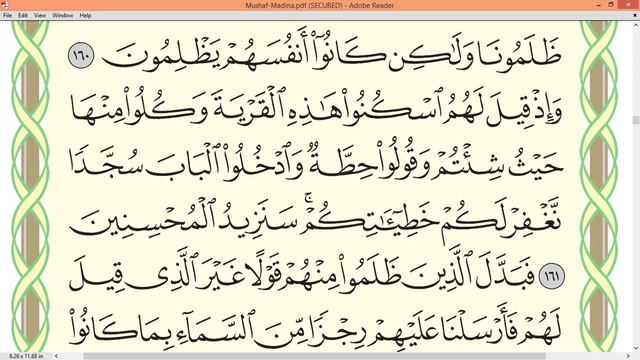 Mushaf-Madina.pdf (SECURED) - Adobe Reader
File Edit View Window Help
ظَلَمُونَا وَلَٰكِن كَانُوٓا۟ أَنفُسَهُمْ يَظْلِمُونَ ١٦٠
وَإِذْ قِيلَ لَهُمُ ٱسْكُنُوا۟ هَٰذِهِ ٱلْقَرْيَةَ وَكُلُوا۟ مِنْهَا
حَيْثُ شِئْتُمْ وَقُولُوا۟ حِطَّةٌ وَٱدْخُلُوا۟ ٱلْبَابَ سُجَّدًا
نَّغْفِرْ لَكُمْ خَطِيٓـَٰٔتِكُمْ ۚ سَنَزِيدُ ٱلْمُحْسِنِينَ
١٦١ فَبَدَّلَ ٱلَّذِينَ ظَلَمُوا۟ مِنْهُمْ قَوْلًا غَيْرَ ٱلَّذِى قِيلَ
لَهُمْ فَأَرْسَلْنَا عَلَيْهِمْ رِجْزًا مِّنَ ٱلسَّمَآءِ بِمَا كَانُوا۟
8.26 x 11.68 in